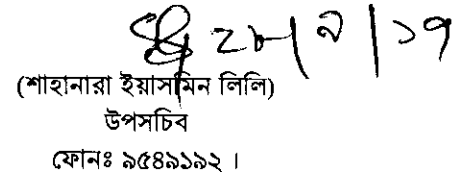 ২৮/৯/১৭
(শাহানারা ইয়াসমিন লিলি)
উপসচিব
ফোনঃ ৯৫৪৯১৯২ ।